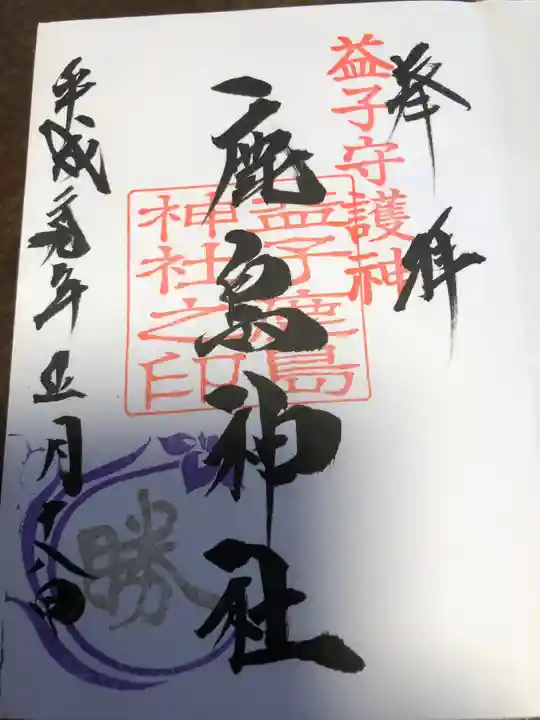 奉拝
益子守護神
鹿島神社
益子鹿島
神社之印
平成 年 月十八日
勝